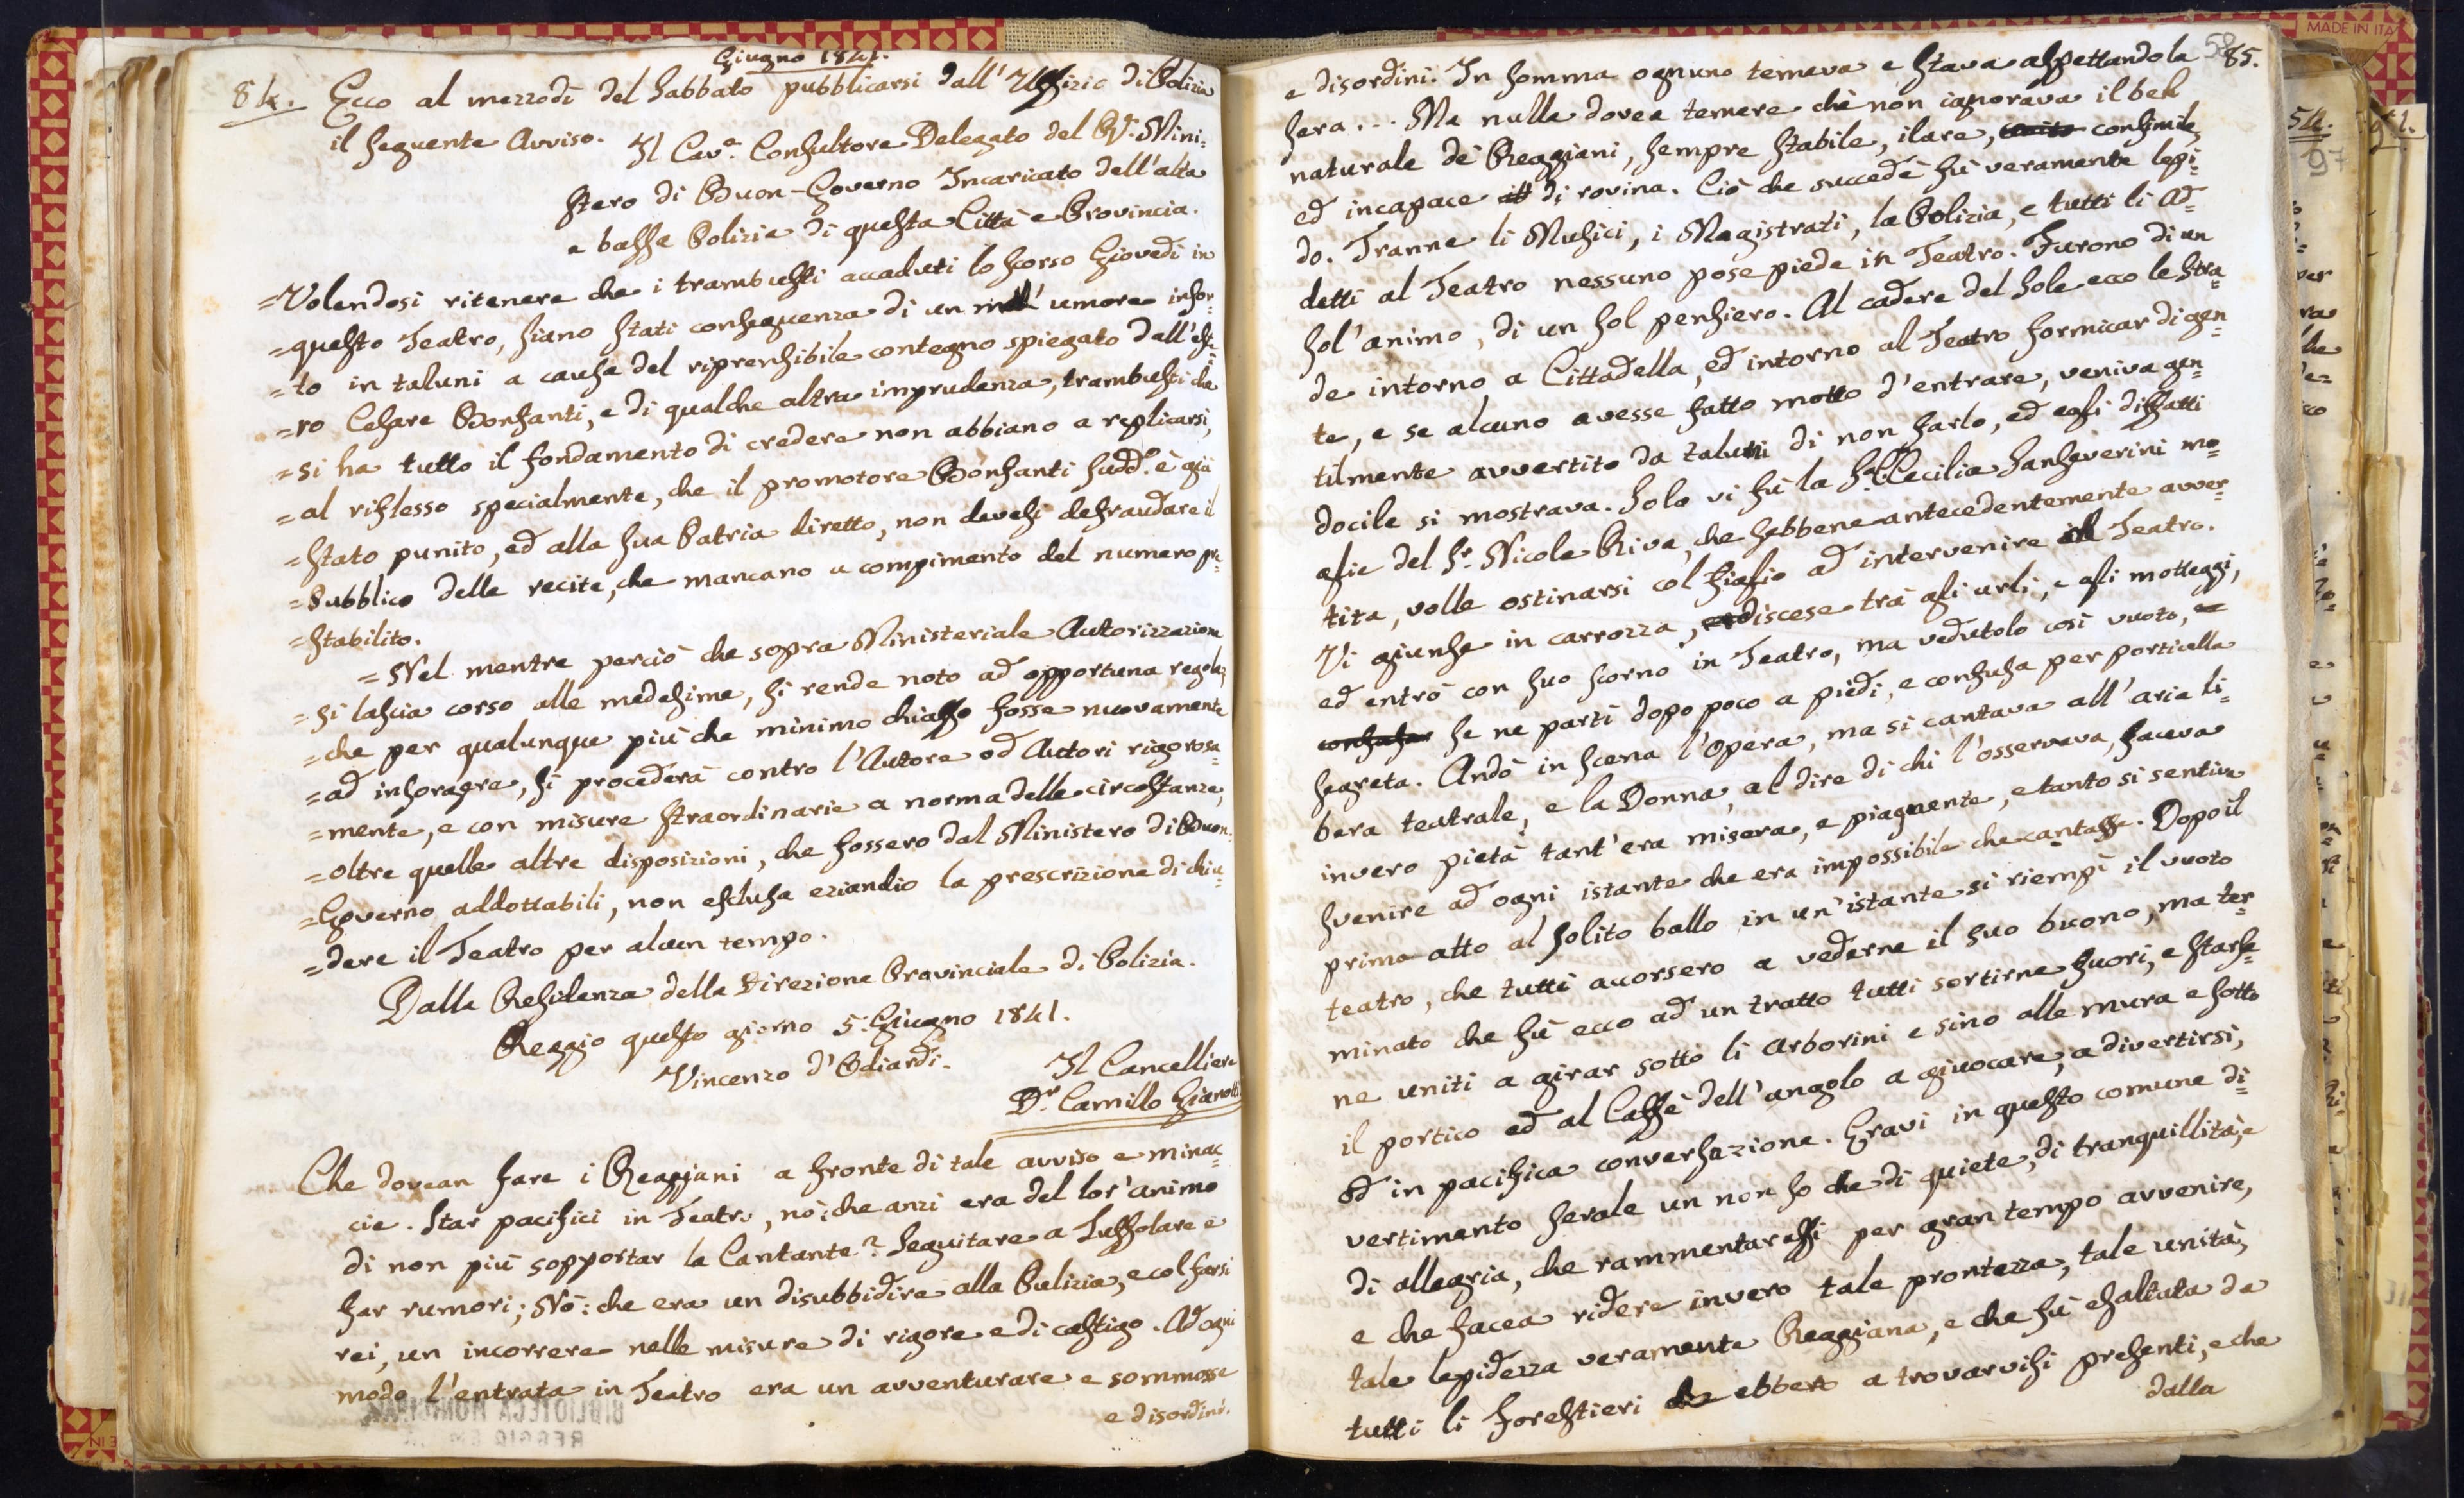 Giugno 1841.
84. Ecco al mezzodì del Sabbato pubblicarsi dall'Uffizio di Polizia
il seguente Avviso. Il Cav.e Consultore Delegato del R. Mini:
stero di Buon-Governo Incaricato dell'alta
e bassa Polizia di questa Città e Provincia.
=Volendosi ritenere che i trambusti accaduti lo scorso Giovedì in
=questo Teatro, siano stati conseguenza di un mal' umore insor=
=to in taluni a causa del riprensibile contegno spiegato dall'este=
=ro Cesare Bonfanti, e di qualche altra imprudenza, trambusti che
=si ha tutto il fondamento di credere non abbiano a replicarsi,
=al riflesso specialmente, che il promotore Bonfanti sudd.o è già
=stato punito, ed alla sua Patria diretto, non devesi defraudare il
=Pubblico delle recite, che mancano a compimento del numero pre=
=stabilito.
=Nel mentre perciò che sopra Ministeriale Autorizzazione
=si lascia corso alle medesime, si rende noto ad opportuna regola,
=che per qualunque più che minimo chiasso fosse nuovamente
=ad insorgere, si procederà contro l'Autore od Autori rigorosa=
=mente, e con misure straordinarie a norma delle circostanze,
=oltre quelle altre disposizioni, che fossero dal Ministero di Buon=
=Governo addottabili, non esclusa eziandio la prescrizione di chiu=
=dere il Teatro per alcun tempo.
Dalla Residenza della Direzione Provinciale di Polizia.
Reggio questo giorno 5. Giugno 1841.
Vincenzo d'Odiardi. Il Cancelliere
D.r Camillo Gianotti
Che dovean fare i Reggiani a fronte di tale avviso e minac=
cie. Star pacifici in Teatro, nò; che anzi era del lor'animo
di non più sopportar la Cantante? Seguitare a Zuffolare e
far rumori; Nò: che era un disubbidire alla Pulizia, e col farsi
rei, un incorrere nelle misure di rigore e di castigo. Ad ogni
modo l'entrata in Teatro era un avventurare e sommosse
e disordini.
58
85.
e disordini. In somma ognuno temeva e stava aspettando la
sera... Ma nulla dovea temere chè non ignorava il bel
naturale de' Reggiani, sempre stabile, ilare, consimile,
ed incapace di rovina. Ciò che succedè fù veramente lepi=
do. Tranne li Musici, i Magistrati, la Polizia, e tutti li Ad=
detti al Teatro nessuno pose piede in Teatro. Furono di un
sol'animo, di un sol pensiero. Al cadere del Sole ecco le stra=
de intorno a Cittadella, ed intorno al Teatro formicar di gen=
te, e se alcuno avesse fatto motto d'entrare, veniva gen=
tilmente avvertito da taluni di non farlo, ed egli diffatti
docile si mostrava. Solo vi fù la S.a Cecilia Sanseverini mo=
glie del S.r Nicola Riva, che sebbene antecedentemente avver=
tita, volle ostinarsi col figlio ad intervenire al Teatro.
Vi giunse in carrozza, discese trà gli urli, e gli motteggi,
ed entrò con suo scorno in Teatro, ma vedutolo così vuoto,
se ne partì dopo poco a piedi, e confusa per porticella
segreta. Andò in scena l'Opera, ma si cantava all'aria li=
bera teatrale, e la Donna, al dire di chi l'osservava, faceva
invero pietà tant'era misera, e piagnente, e tanto si sentiva
svenire ad ogni istante che era impossibile che cantasse. Dopo il
primo atto al solito ballo in un'istante si riempì il vuoto
teatro, che tutti accorsero a vederne il suo buono, ma ter=
minato che fù ecco ad un tratto tutti sortirne fuori, e starse=
ne uniti a girar sotto li arborini e sino alle mura e sotto
il portico ed al Caffè dell'angolo a giuocare, a divertirsi,
ed in pacifica conversazione. Eravi in questo comune di=
vertimento serale un non so che di quiete, di tranquillità, e
di allegria, che rammentarassi per gran tempo avvenire,
e che facea ridere invero tale prontezza, tale unità,
tale lepidezza veramente Reggiana, e che fù esaltata da
tutti li forestieri ebbero a trovarvisi presenti, e che
dalla
MADE IN ITA
54.
97